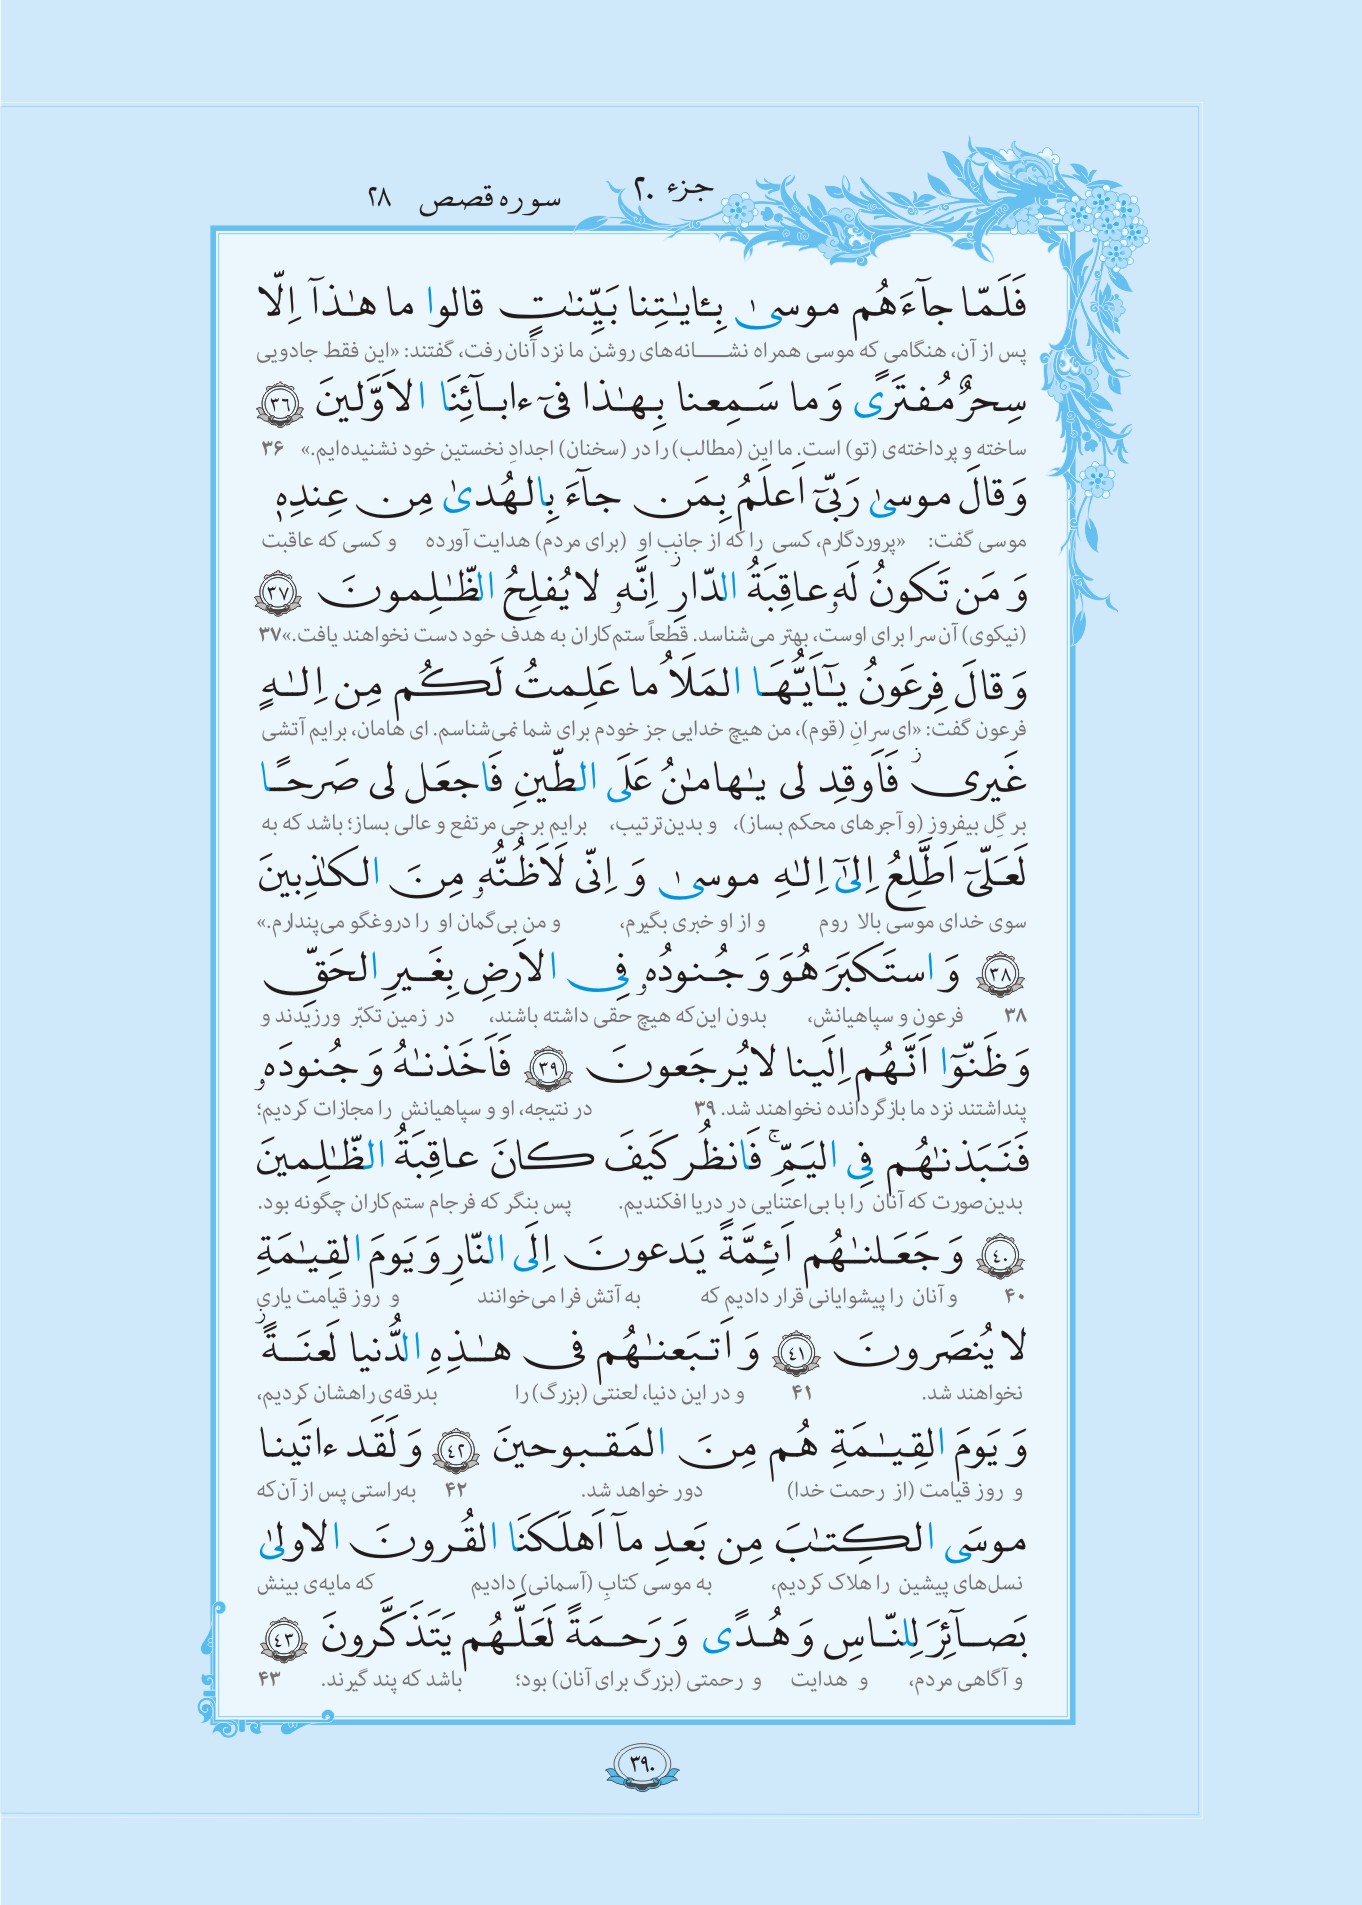 جزء ۲۰
سوره قصص ۲۸
فَلَمّا جآءَهُم موسىٰ بِـٔايـٰتِنا بَيِّنـٰتٍ قالوا ما هـٰذآ اِلّا
پس از آن، هنگامی که موسی همراه نشانه‌های روشن ما نزد آنان رفت، گفتند: «این فقط جادویی
سِحرٌ مُفتَرًى وَ ما سَمِعنا بِهـٰذا فىٓ ءابآئِنَا الاَوَّلينَ ﴿٣٦﴾
ساخته و پرداخته‌ی (تو) است. ما این (مطالب) را در (سخنان) اجدادِ نخستین خود نشنیده‌ایم.» ۳۶
وَ قالَ موسىٰ رَبّىٓ اَعلَمُ بِمَن جآءَ بِالهُدىٰ مِن عِندِهٖ
موسی گفت: «پروردگارم، کسی را که از جانب او (برای مردم) هدایت آورده و کسی که عاقبت
وَ مَن تَكونُ لَهٗ عاقِبَةُ الدّارِ ۖ اِنَّهٗ لا يُفلِحُ الظّـٰلِمونَ ﴿٣٧﴾
(نیکوی) آن سرا برای اوست، بهتر می‌شناسد. قطعاً ستم‌کاران به هدف خود دست نخواهند یافت.» ۳۷
وَ قالَ فِرعَونُ يـٰٓاَيُّهَا المَلَاُ ما عَلِمتُ لَكُم مِن اِلـٰهٍ
فرعون گفت: «ای سرانِ (قوم)، من هیچ خدایی جز خودم برای شما نمی‌شناسم. ای هامان، برایم آتشی
غَيرى ۖ فَاَوقِد لى يـٰهامـٰنُ عَلَى الطّينِ فَاجعَل لى صَرحًا
بر گِل بیفروز (و آجرهای محکم بساز)، و بدین‌ترتیب، برایم برجی مرتفع و عالی بساز؛ باشد که به
لَعَلّىٓ اَطَّلِعُ اِلىٰٓ اِلـٰهِ موسىٰ وَ اِنّى لَاَظُنُّهٗ مِنَ الكـٰذِبينَ
سوی خدای موسی بالا روم و از او خبری بگیرم، و من بی‌گمان او را دروغگو می‌پندارم.»
﴿٣٨﴾ وَ استَكبَرَ هُوَ وَ جُنودُهٗ فِى الاَرضِ بِغَيرِ الحَقِّ
۳۸ فرعون و سپاهیانش، بدون این‌که هیچ حقی داشته باشند، در زمین تکبّر ورزیدند و
وَ ظَنّوٓا اَنَّهُم اِلَينا لا يُرجَعونَ ﴿٣٩﴾ فَاَخَذنـٰهُ وَ جُنودَهٗ
پنداشتند نزد ما بازگردانده نخواهند شد. ۳۹ در نتیجه، او و سپاهیانش را مجازات کردیم؛
فَنَبَذنـٰهُم فِى اليَمِّ ۚ فَانظُر كَيفَ كانَ عاقِبَةُ الظّـٰلِمينَ
بدین‌صورت که آنان را با بی‌اعتنایی در دریا افکندیم. پس بنگر که فرجام ستم‌کاران چگونه بود.
﴿٤٠﴾ وَ جَعَلنـٰهُم اَئِمَّةً يَدعونَ اِلَى النّارِ وَ يَومَ القِيـٰمَةِ
۴۰ و آنان را پیشوایانی قرار دادیم که به آتش فرا می‌خوانند و روز قیامت یاری
لا يُنصَرونَ ﴿٤١﴾ وَ اَتبَعنـٰهُم فى هـٰذِهِ الدُّنيا لَعنَةً ۖ
نخواهند شد. ۴۱ و در این دنیا، لعنتی (بزرگ) را بدرقه‌ی راهشان کردیم،
وَ يَومَ القِيـٰمَةِ هُم مِنَ المَقبوحينَ ﴿٤٢﴾ وَ لَقَد ءاتَينا
و روز قیامت (از رحمت خدا) دور خواهد شد. ۴۲ به‌راستی پس از آن‌که
موسَى الكِتـٰبَ مِن بَعدِ مآ اَهلَكنَا القُرونَ الاولىٰ
نسل‌های پیشین را هلاک کردیم، به موسی کتابِ (آسمانی) دادیم که مایه‌ی بینش
بَصآئِرَ لِلنّاسِ وَ هُدًى وَ رَحمَةً لَعَلَّهُم يَتَذَكَّرونَ ﴿٤٣﴾
و آگاهی مردم، و هدایت و رحمتی (بزرگ برای آنان) بود؛ باشد که پند گیرند. ۴۳
۳۹۰